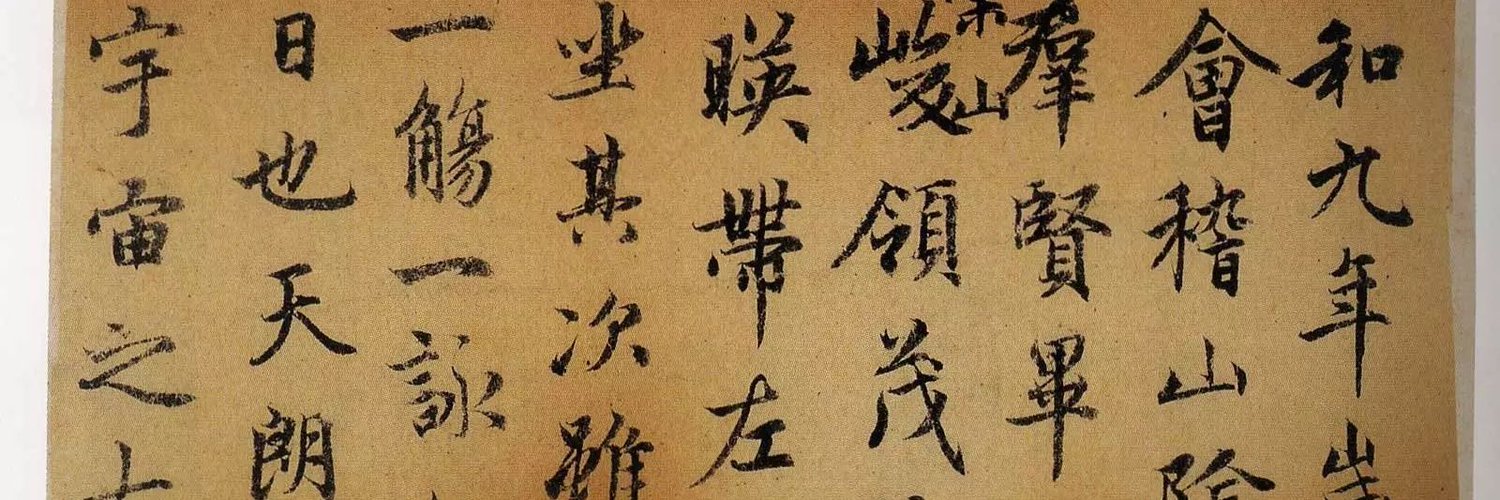 和九年歲
會稽山陰
羣賢畢
崇山
峻領茂
暎帶左
坐其次雖
一觴一詠
日也天朗
宇宙之大